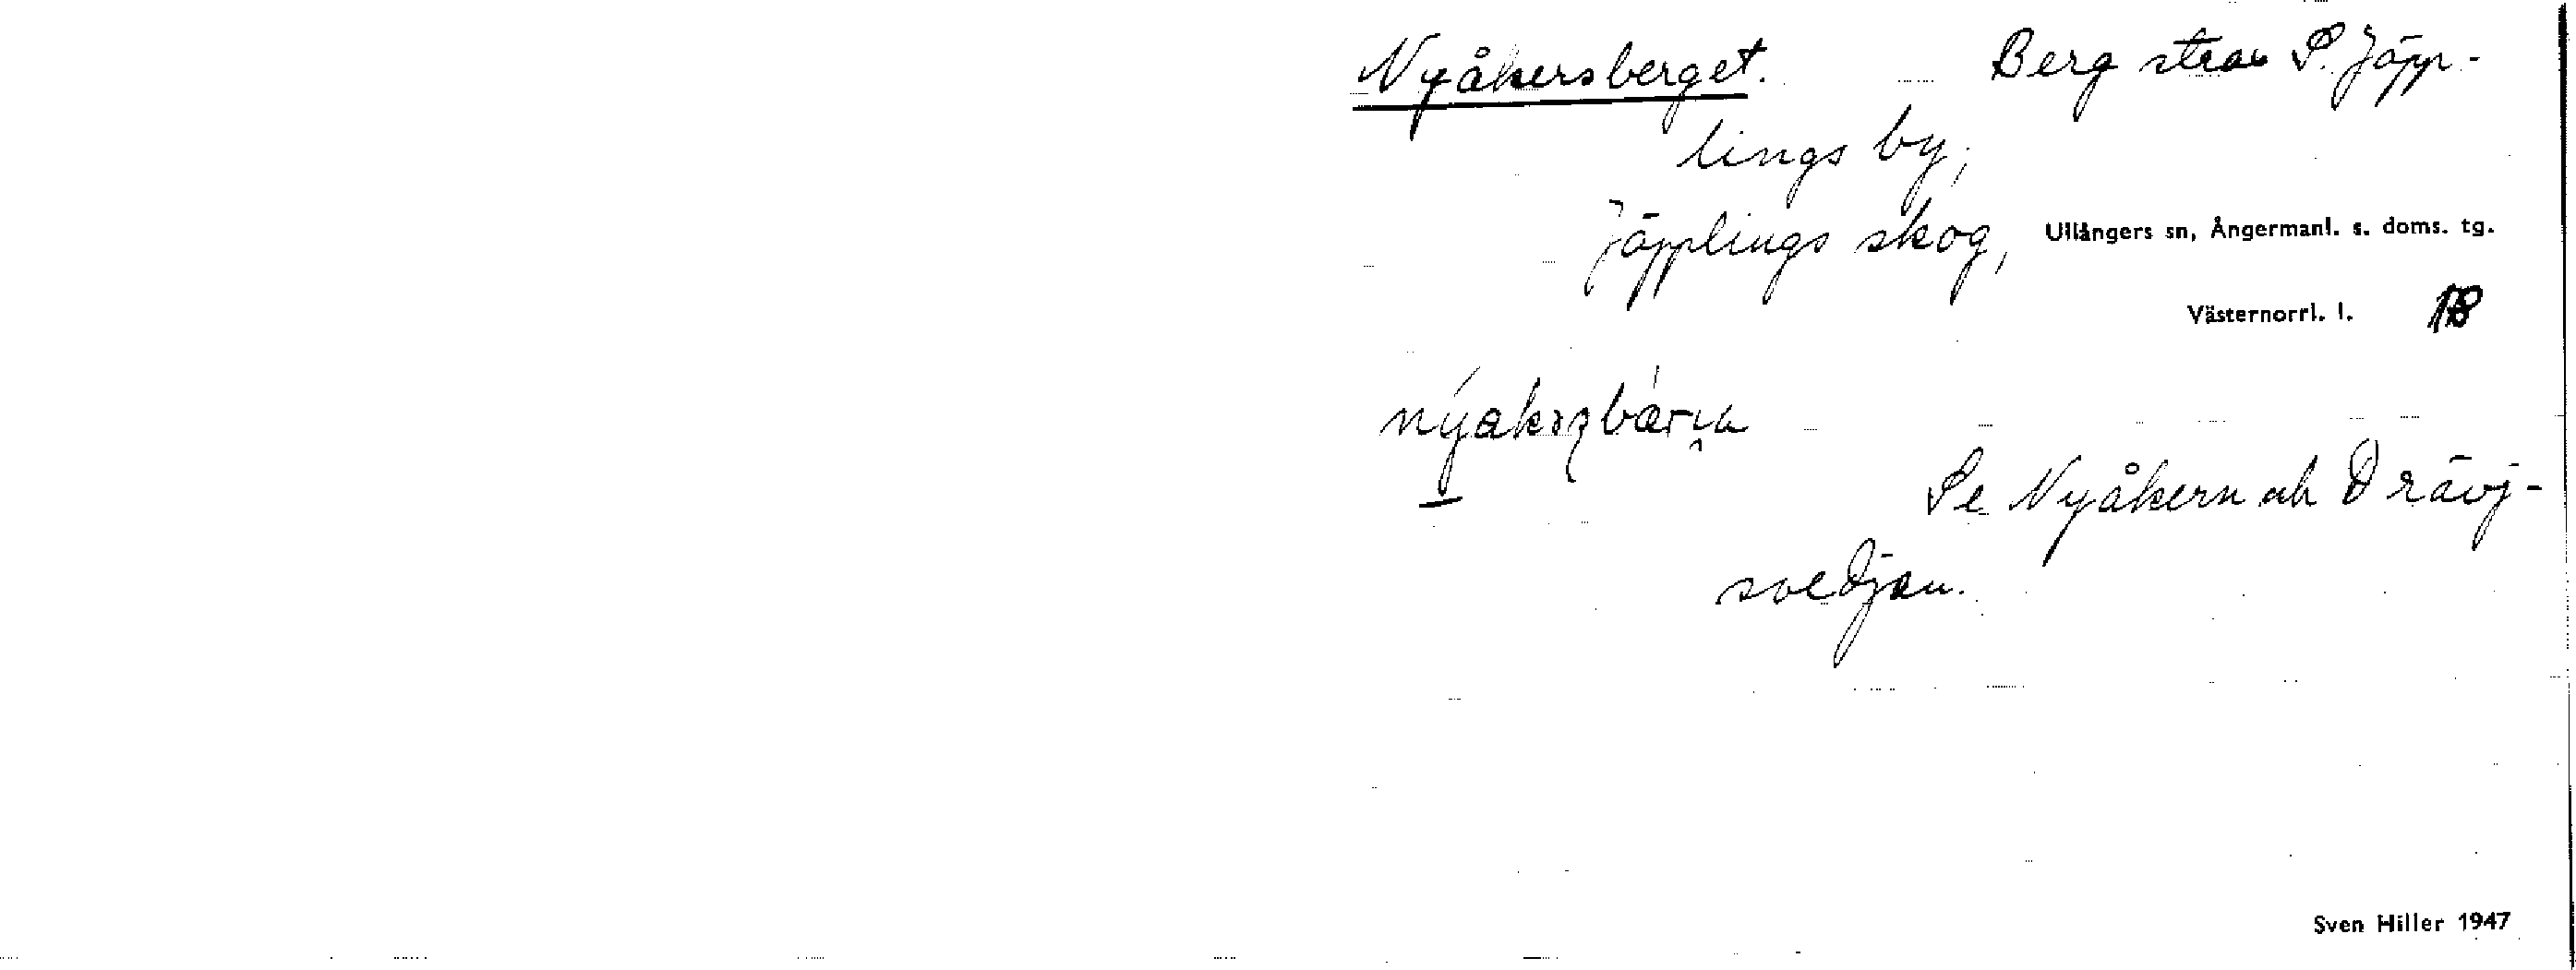 Nyåkersberget. Berg strax S. Jäpp-
lings by;
Jäpplings skog, Ullångers sn, Ångermanl. s. doms. tg.
Västernorrl. l. 18
Se Nyåkern och Drävj-
svedjan.
Sven Hiller 1947